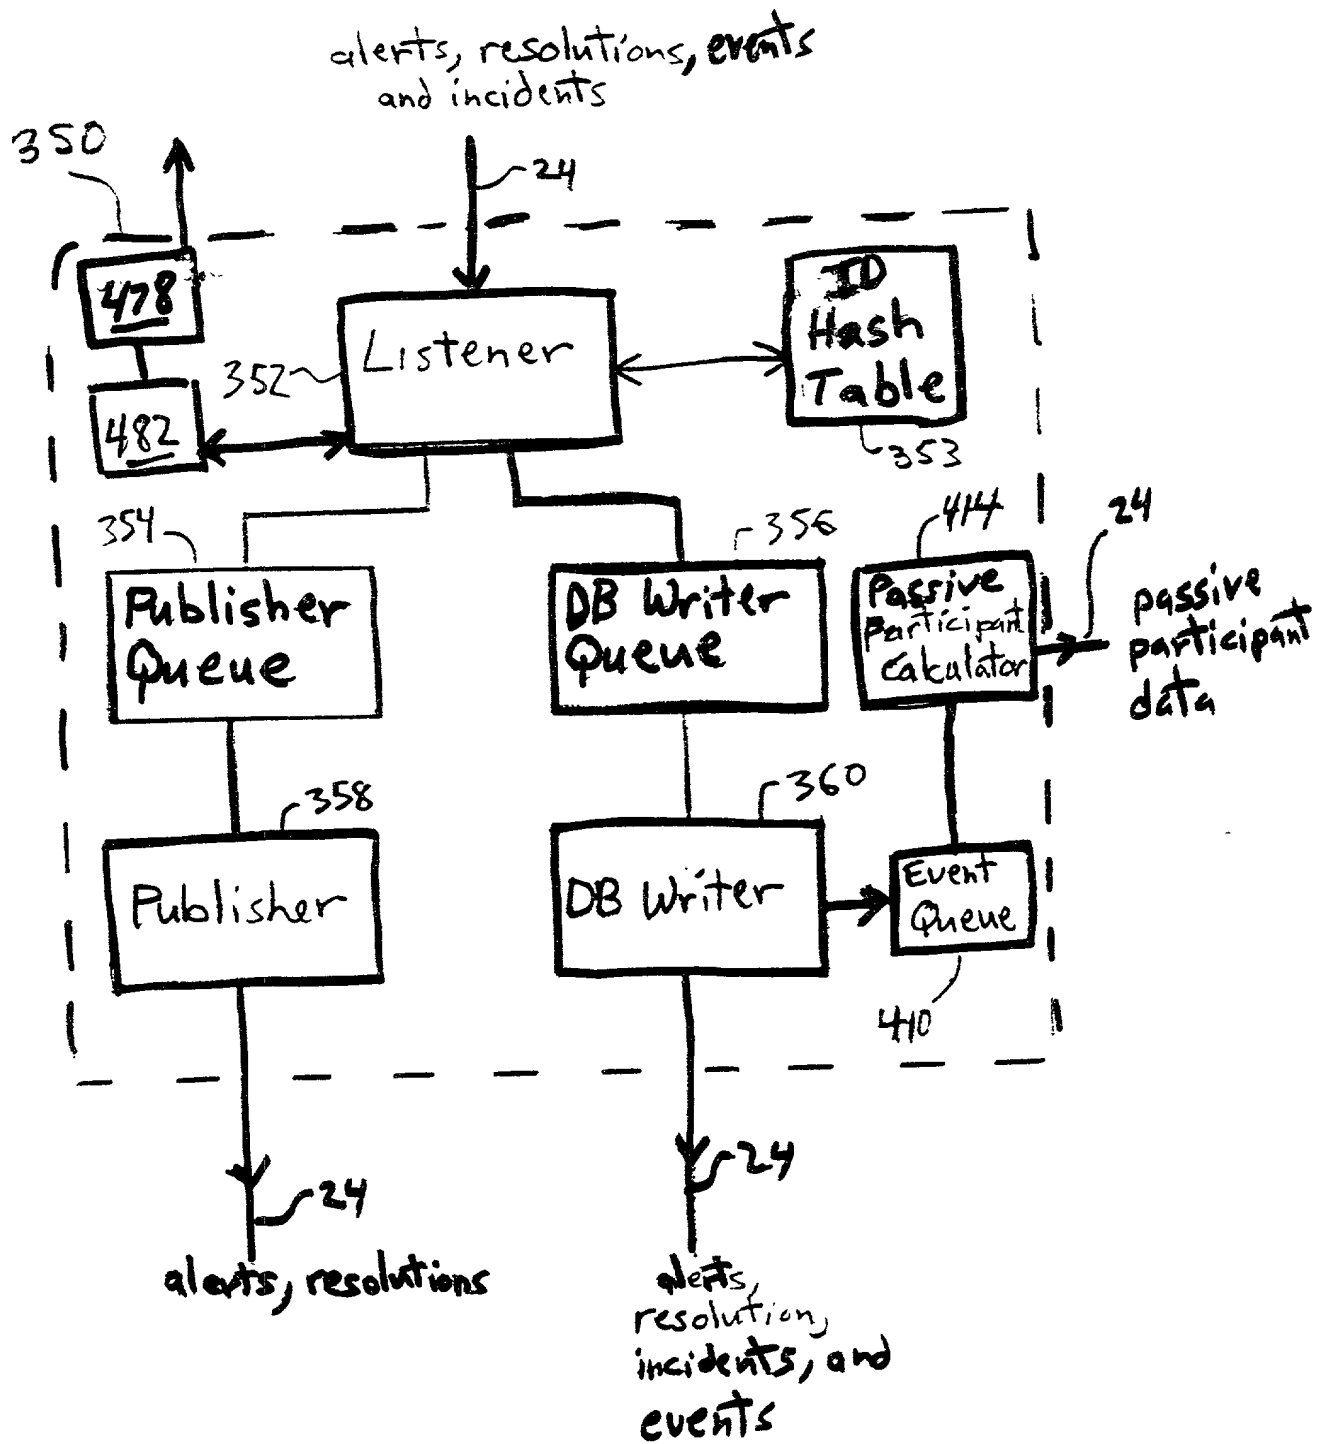 alerts, resolutions, events
and incidents
350
24
478
352
Listener
ID
Hash
Table
482
353
354
356
414
24
Publisher
Queue
DB Writer
Queue
Passive
Participant
Calculator
passive
participant
data
358
360
Publisher
DB Writer
Event
Queue
410
24
24
alerts, resolutions
alerts,
resolution,
incidents, and
events